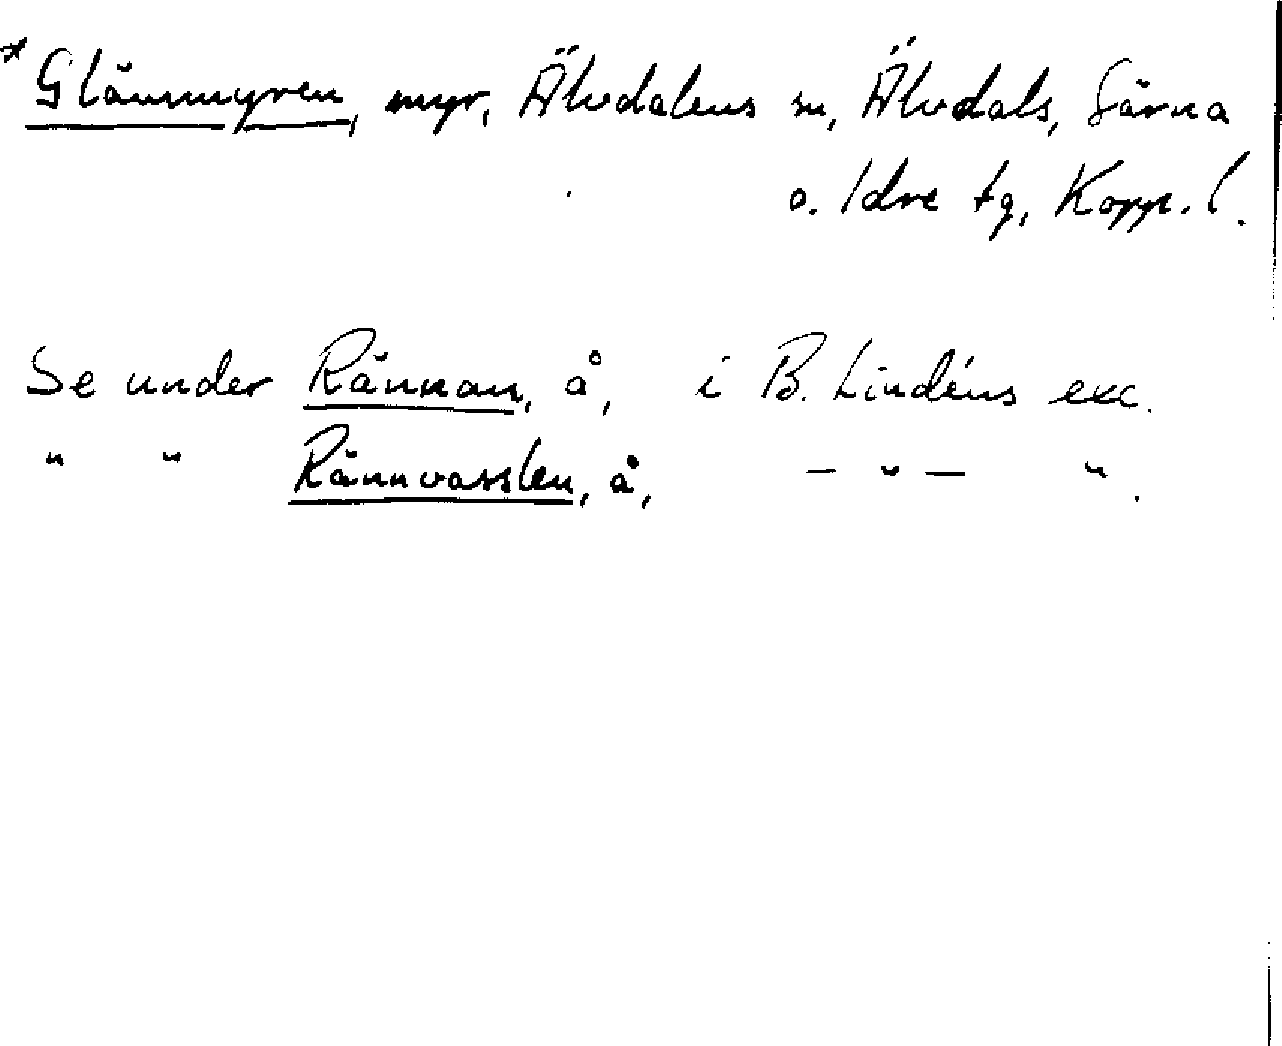 *Glännmyren, myr, Älvdalens sn, Älvdals, Särna
o. Idre tg, Kopp. l.
Se under Rännan, å, i B. Lindéns exc.
" " Rännvasslen, å, — " — ".